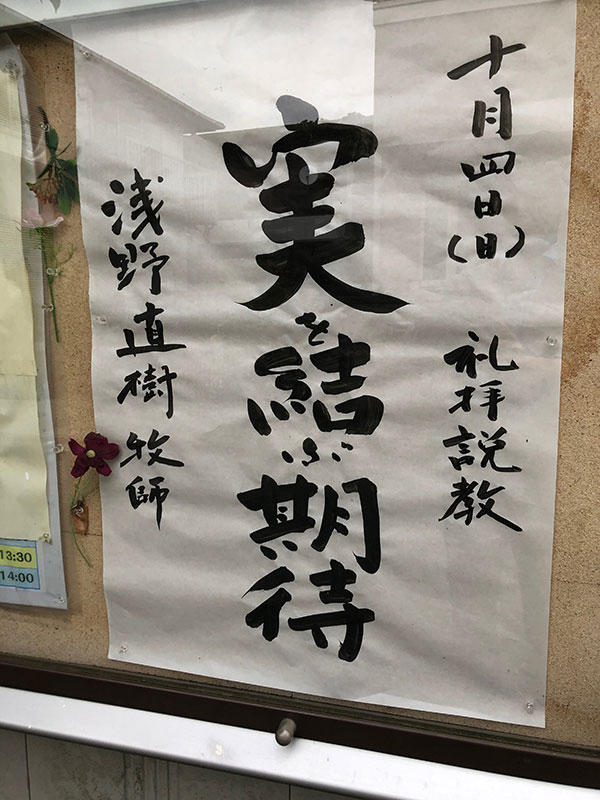 十月四日(日) 礼拝説教
実を結ぶ期待
浅野直樹 牧師
13:30
14:00